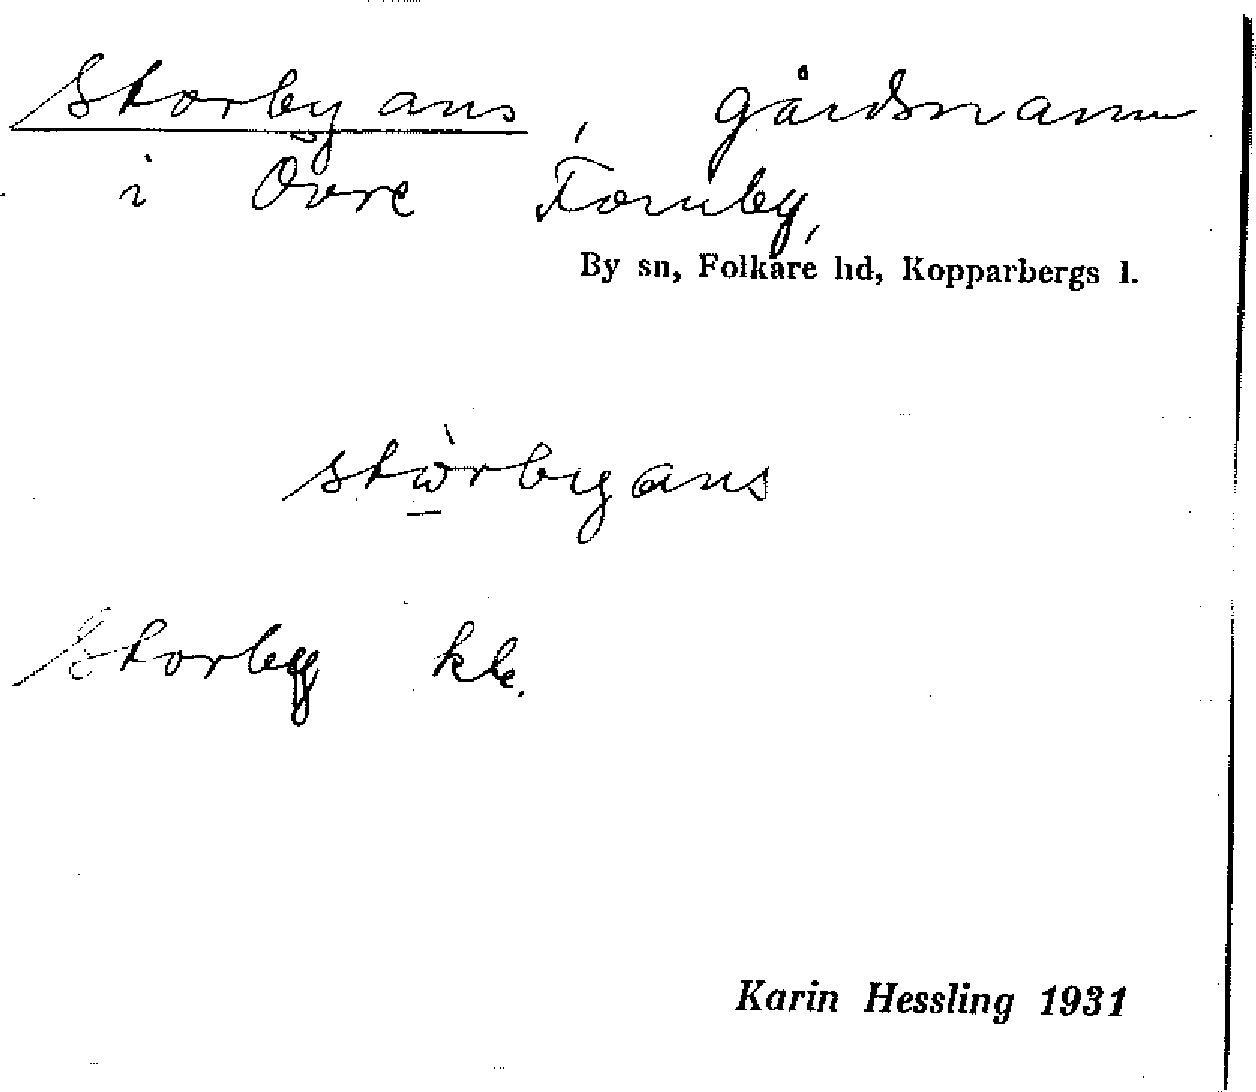 Storbyans, gårdsnamn
i Övre Fornby,
By sn, Folkare hd, Kopparbergs l.
stòrbyans
Storby kk.
Karin Hessling 1931